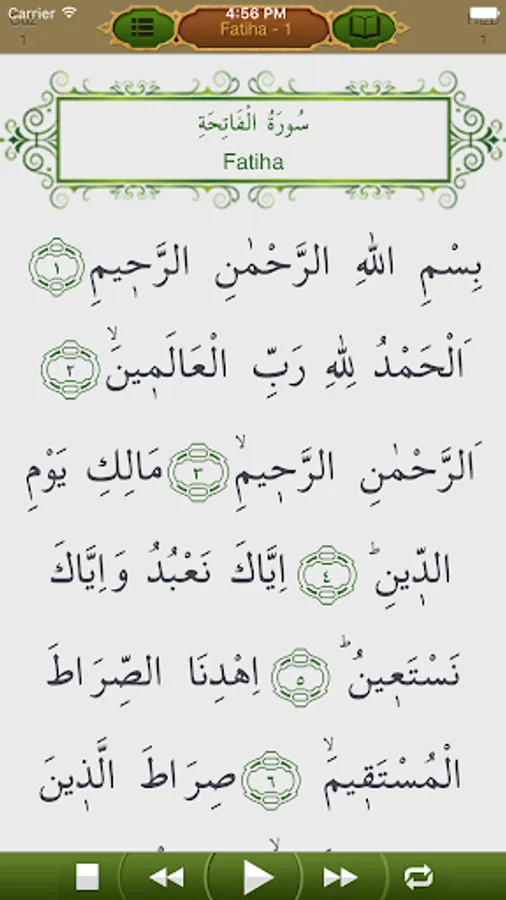 Carrier 4:56 PM
1 Fatiha - 1 1
سُورَةُ الْفَاتِحَةِ
Fatiha
بِسْمِ اللّٰهِ الرَّحْمٰنِ الرَّح۪يمِ ١
اَلْحَمْدُ لِلّٰهِ رَبِّ الْعَالَم۪ينَۙ ٢
اَلرَّحْمٰنِ الرَّح۪يمِۙ ٣ مَالِكِ يَوْمِ
الدّ۪ينِۜ ٤ اِيَّاكَ نَعْبُدُ وَاِيَّاكَ
نَسْتَع۪ينُۜ ٥ اِهْدِنَا الصِّرَاطَ
الْمُسْتَق۪يمَۙ ٦ صِرَاطَ الَّذ۪ينَ